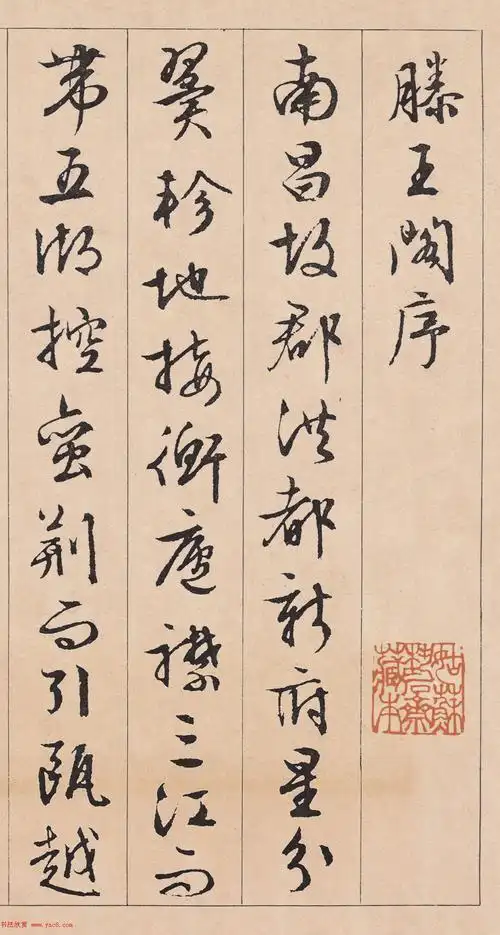 滕王阁序
南昌故郡洪都新府星分
翼轸地接衡庐襟三江而
带五湖控蛮荆而引瓯越
书法欣赏 www.yac8.com